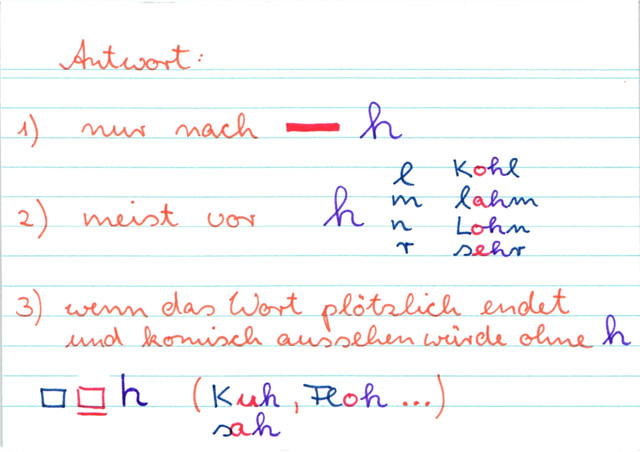 Antwort:
1) nur nach — h
2) meist vor h
l Kohl
m lahm
n Lohn
r sehr
3) wenn das Wort plötzlich endet
und komisch aussehen würde ohne h
h (Kuh, Floh ...)
sah